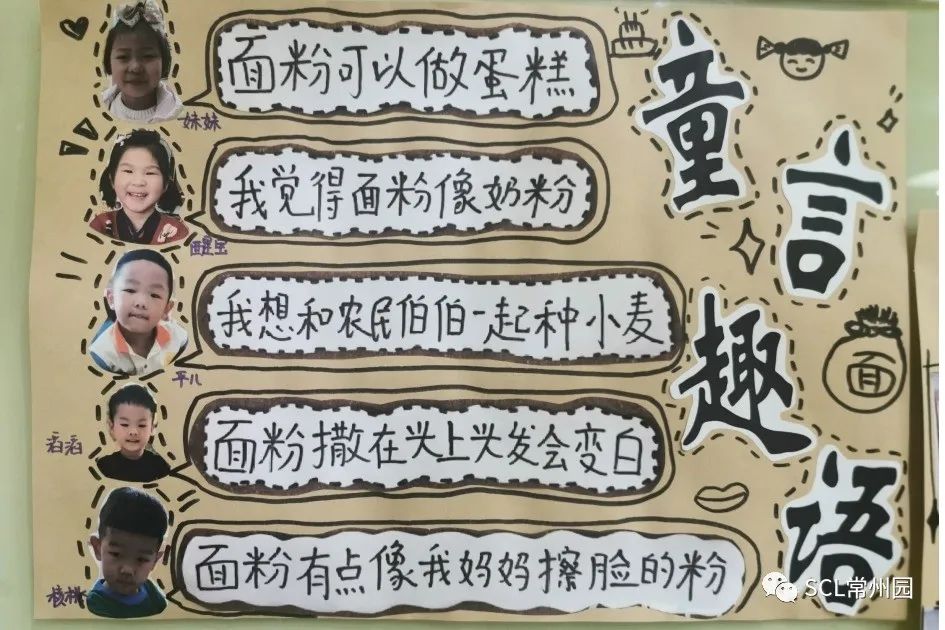 童言趣语
面粉可以做蛋糕
妹妹
我觉得面粉像奶粉
醒宝
我想和农民伯伯一起种小麦
平儿
面
面粉撒在头上头发会变白
滔滔
面粉有点像我妈妈擦脸的粉
核桃
SCL常州园